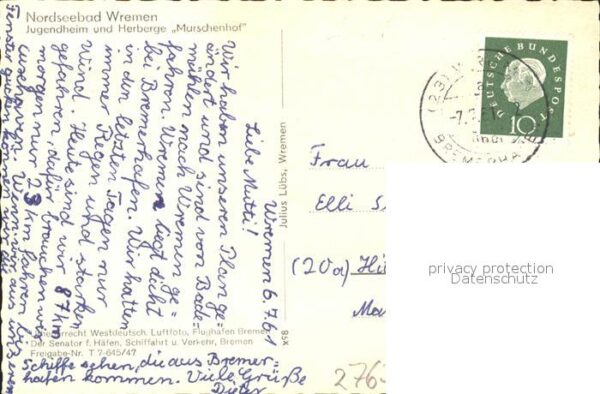 Nordseebad Wremen
Jugendheim und Herberge „Murschenhof"
Wremen 6.7.61
Liebe Mutti!
Wir haben unseren Plan ge=
ändert und sind von Bade=
mühlen nach Wremen ge=
fahren. Wremen liegt dicht
bei Bremerhafen. Wir hatten
in den letzten Tagen nur
immer Regen und starken
Wind. Heute sind wir 87 km
gefahren, dafür brauchen wir
morgen nur 23 km fahren
zuschauen. Wenn wir aus unserem
Fenster gucken können wir die
Schiffe sehen, die aus Bremer=
hafen kommen. Viele Grüße
Dieter
Julius Lübs, Wremen
x58
Luftfoto, Flughafen Bremen
Der Senator f. Häfen, Schiffahrt u. Verkehr, Bremen
Freigabe-Nr. T 7-645/47
DEUTSCHE BUNDESPOST
10
(23)
BREMERHA
Frau
Elli S
(20a) Hi
Ma
276
privacy protection
Datenschutz